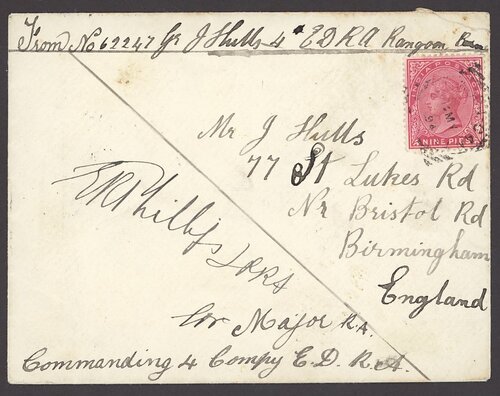 From No 62247 Gr J Hulls 4 E D R A Rangoon
NINE PIES
Mr J Hulls
77 St Lukes Rd
Nr Bristol Rd
Birmingham
England
E R Phillips Lt RA
for Major R.A.
Commanding 4 Compy E. D. R. A.